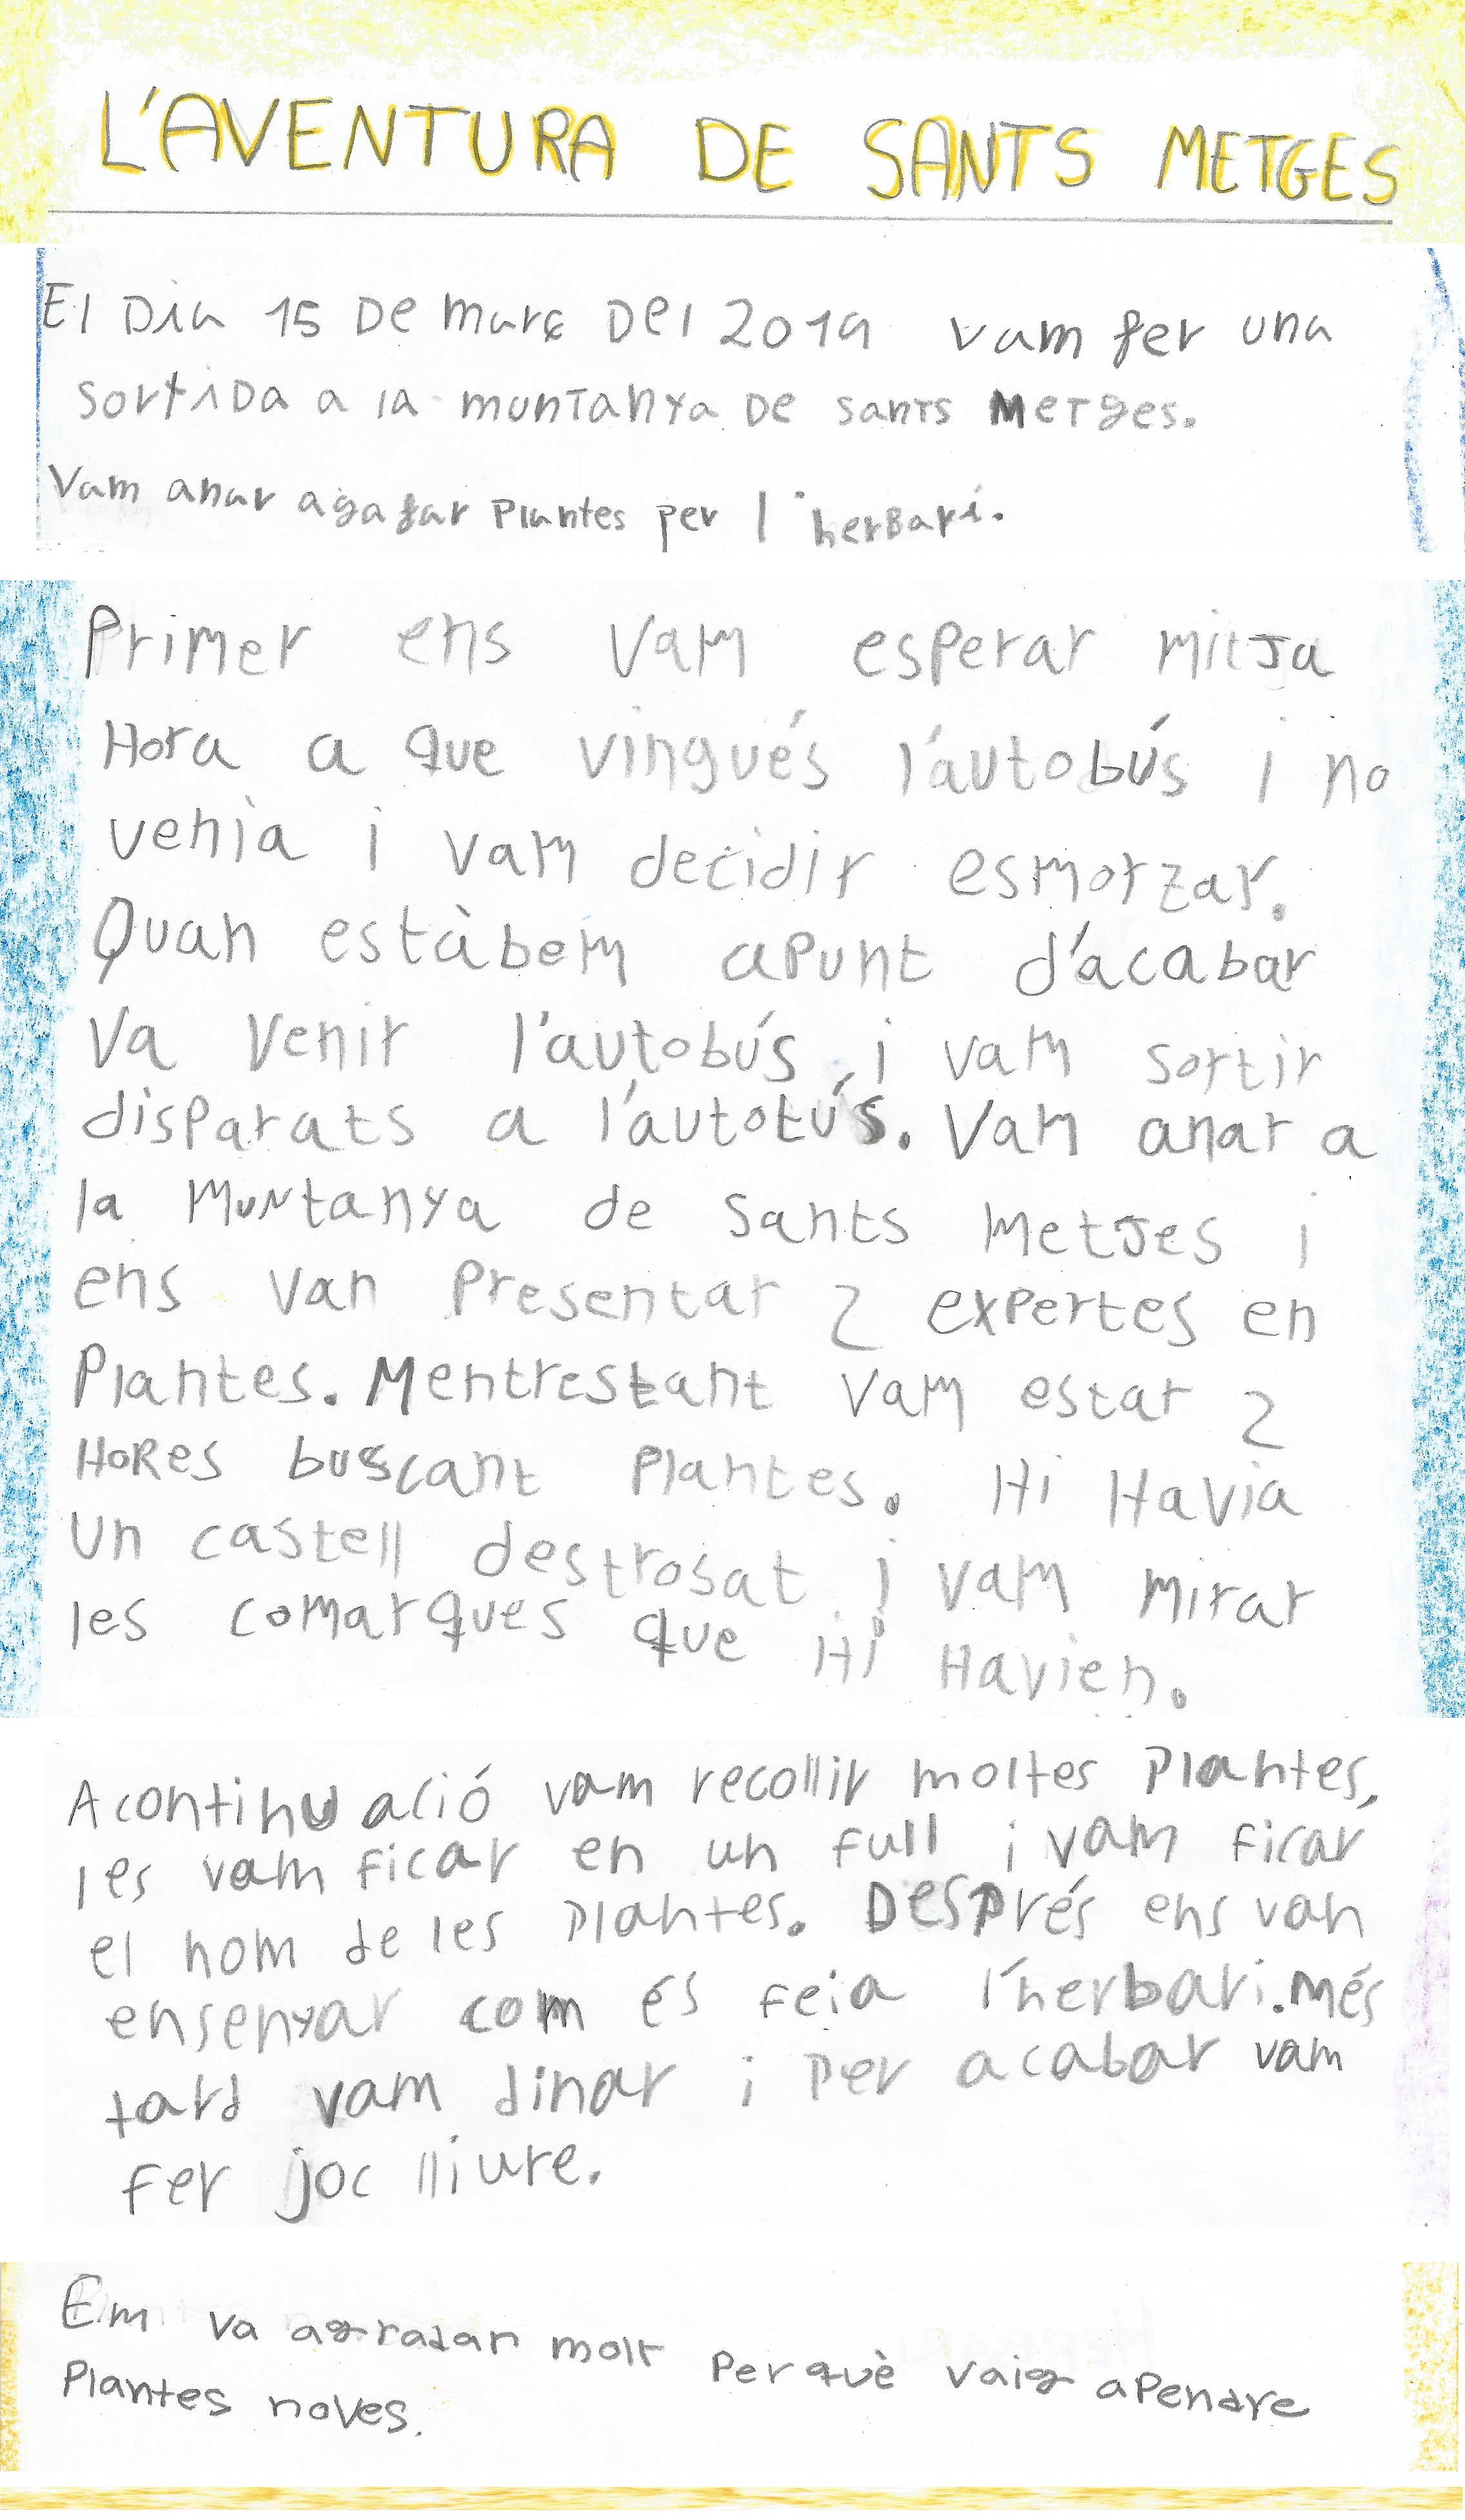 L'AVENTURA DE SANTS METGES
El Dia 15 De març Del 2019 vam fer una
sortida a la muntanya De sants Metges.
Vam anar agafar plantes per l'herbari.
Primer ens vam esperar mitja
Hora a que vingués l'autobús i no
venia i vam decidir esmorzar.
Quan estàbem apunt d'acabar
Va venir l'autobús i vam sortir
disparats a l'autotús. Vam anar a
la Muntanya de Sants Metjes i
ens van Presentar 2 expertes en
Plantes. Mentrestant vam estar 2
HoRes buscant Plantes. Hi Havia
Un castell destrosat i vam mirar
les comarques que Hi Havien.
Acontinuació vam recollir moltes Plantes,
les vam ficar en un full i vam ficar
el nom de les Plantes. DESPrés ens van
ensenyar com és feia l'herbari. Més
tard vam dinar i per acabar vam
fer joc lliure.
Em va agradar molt perquè vaig apendre
Plantes noves.